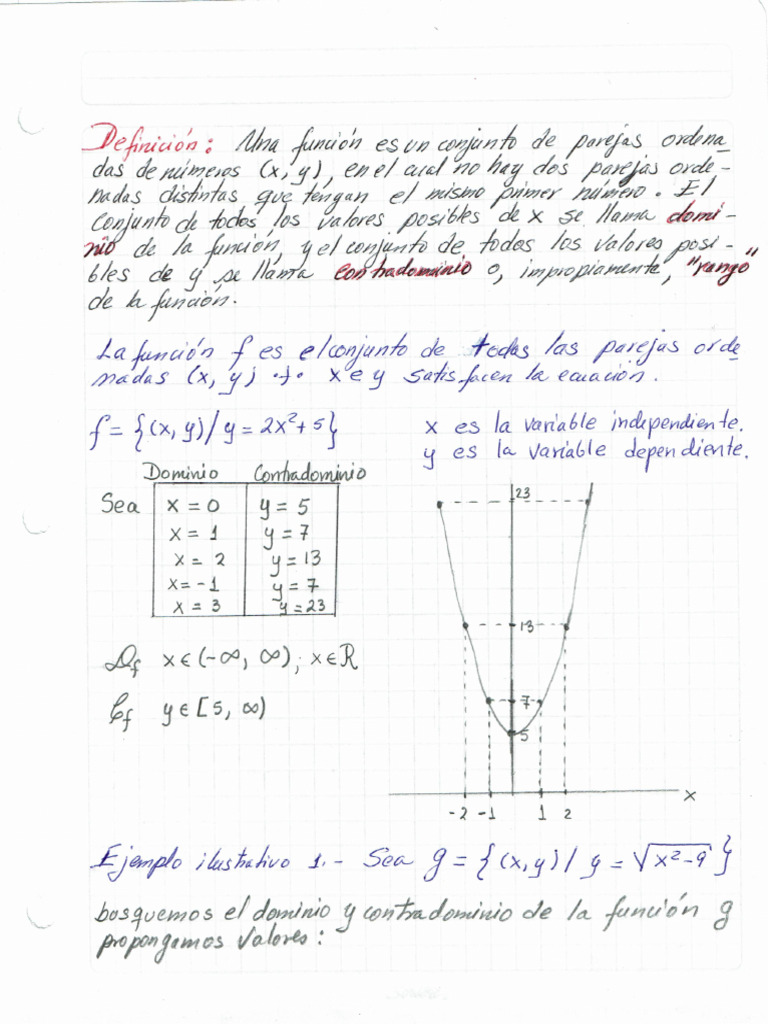 Definición: Una función es un conjunto de parejas ordena-
das de números (x, y), en el cual no hay dos parejas orde-
nadas distintas que tengan el mismo primer número. El
conjunto de todos los valores posibles de x se llama domi-
nio de la función, y el conjunto de todos los valores posi-
bles de y se llama contradominio o, impropiamente, "rango"
de la función.
La función f es el conjunto de todas las parejas orde
nadas (x, y) ·)· x e y satisfacen la ecuación.
f = {(x, y) / y = 2x²+5}
x es la variable independiente.
y es la variable dependiente.
Dominio Contradominio
Sea x = 0 y = 5
x = 1 y = 7
x = 2 y = 13
x = -1 y = 7
x = 3 y = 23
Df x ∈ (-∞, ∞); x ∈ ℝ
Cf y ∈ [5, ∞)
23
13
7
5
x
-2 -1 1 2
Ejemplo ilustrativo 1.- Sea g = {(x, y) / y = √x²-9}
bosquemos el dominio y contradominio de la función g
propongamos valores: